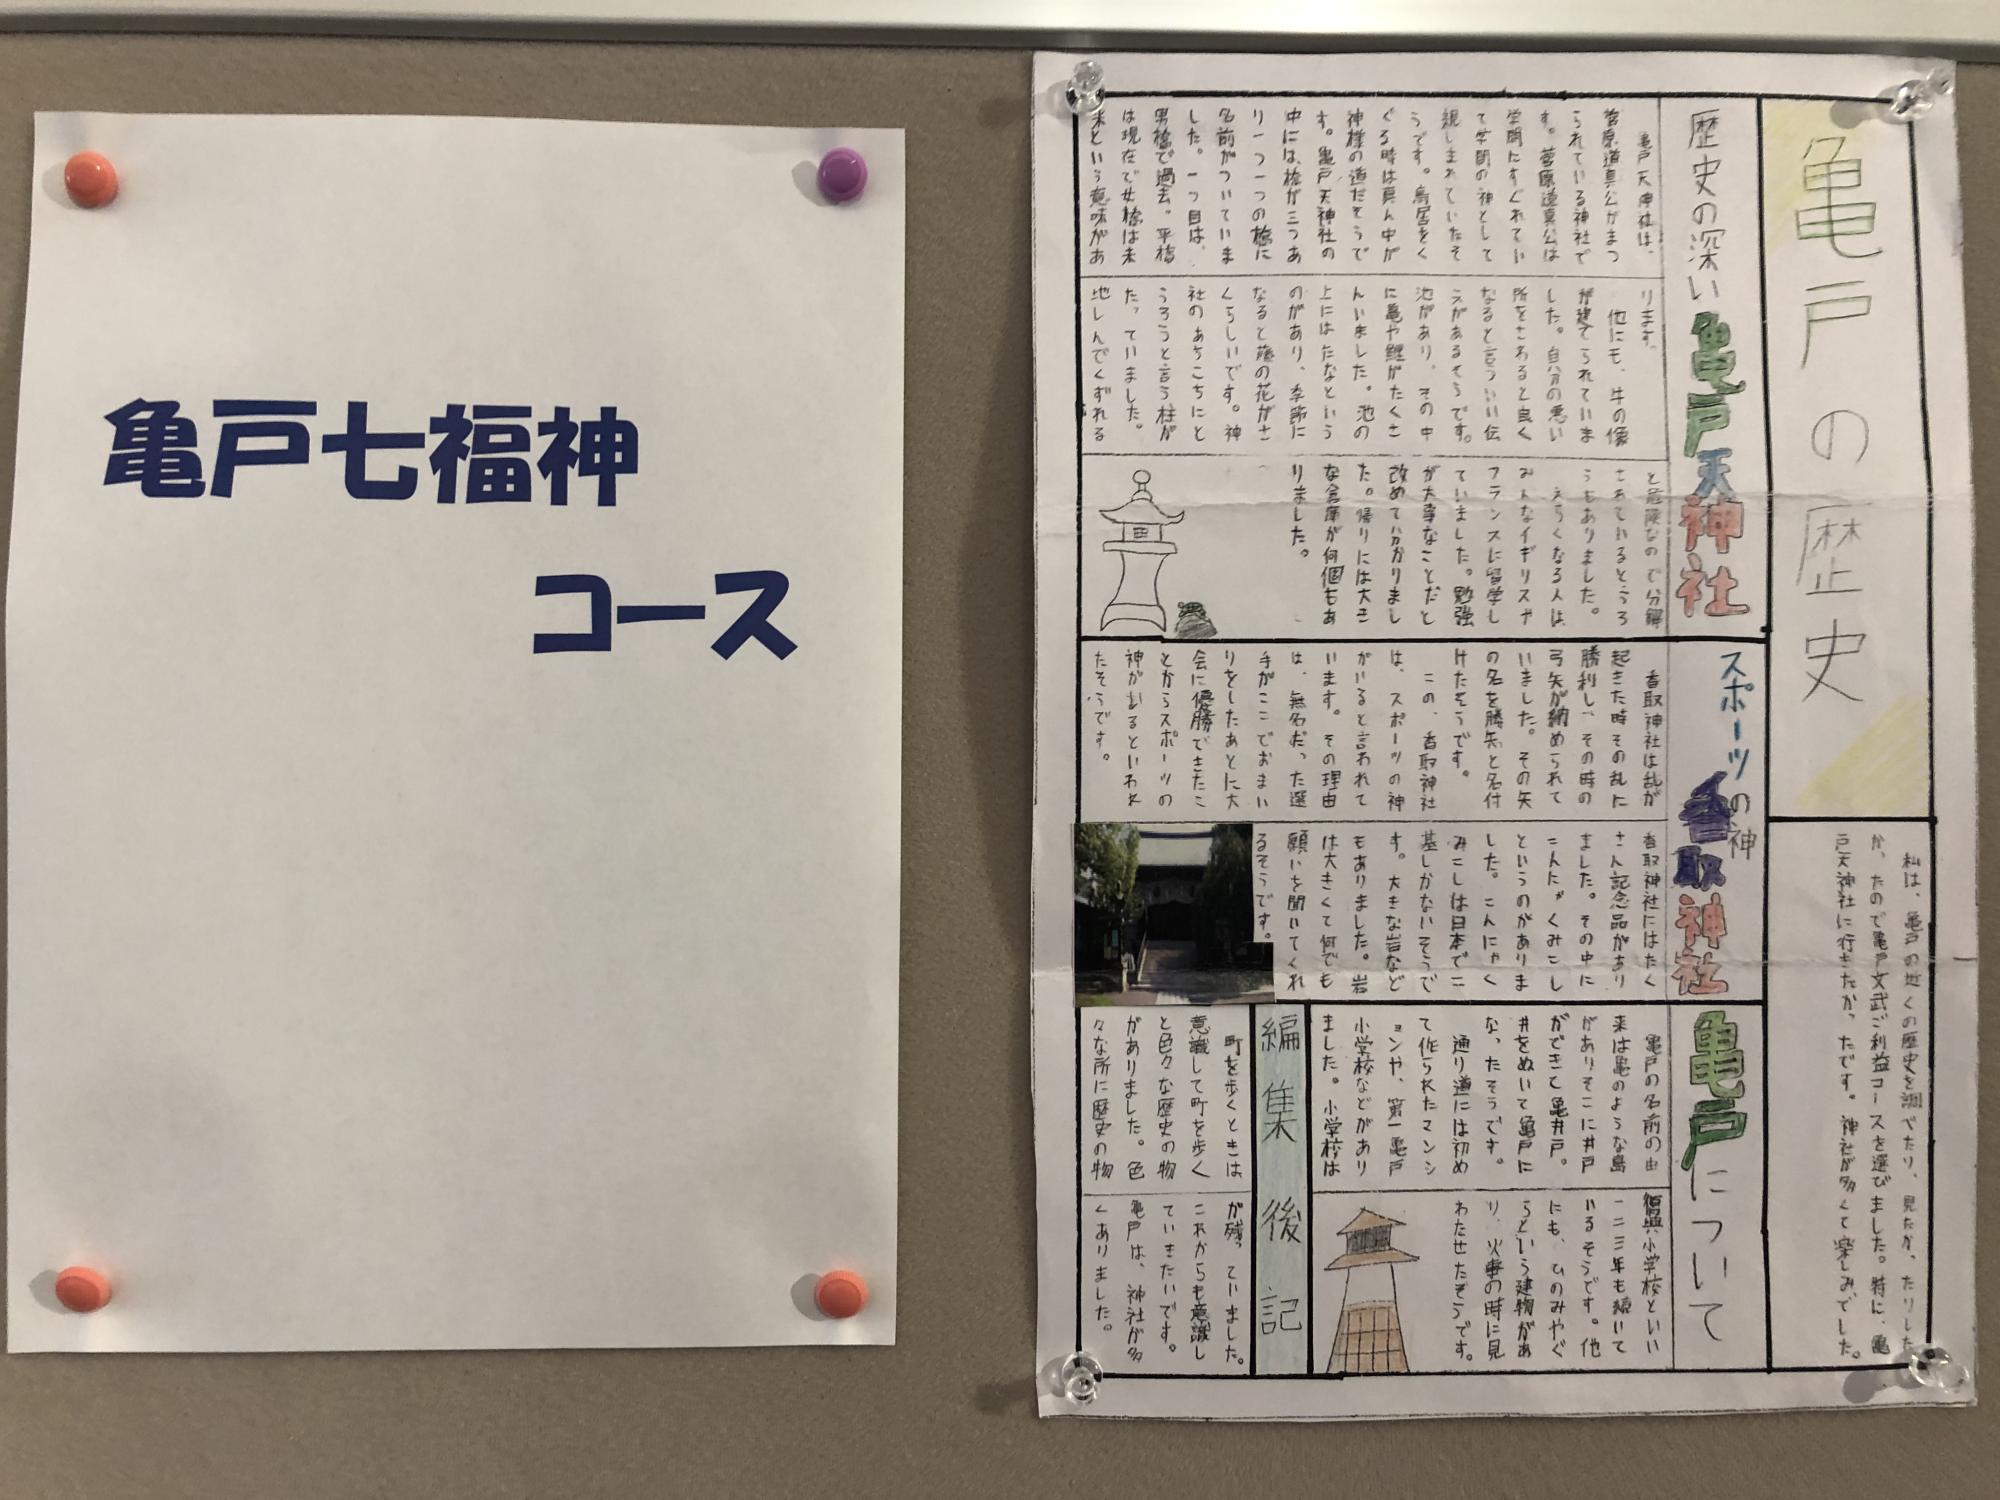 亀戸七福神
コース
亀戸の歴史
私は、亀戸の近くの歴史を調べたり、見たかったりした
かったので亀戸文武ご利益コースを選びました。特に、亀
戸天神社に行きたかったです。神社が多くて楽しみでした。
歴史の深い亀戸天神社
亀戸天神社は、
菅原道真公がまつ
られている神社で
す。菅原道真公は
学問にすぐれてい
て学問の神として
親しまれていたそ
うです。鳥居をく
ぐる時は真ん中が
神様の道だそうで
す。亀戸天神社の
中には、橋が三つあ
り一つ一つの橋に
名前がついていま
した。一つ目は、
男橋で過去。平橋
は現在で女橋は未
来という意味があ
ります。
他にも、牛の像
が建てられていま
した。自分の悪い
所をさわると良く
なると言ういい伝
えがあるそうです。
池があり、その中
に亀や鯉がたくさ
んいました。池の
上にはたなという
のがあり、季節に
なると藤の花がさ
くらしいです。神
社のあちこちにと
うろうと言う柱が
たっていました。
地しんでくずれる
と危険なので分解
されているとうろ
うもありました。
えらくなる人は、
みんなイギリスや
フランスに留学し
ていました。勉強
が大事なことだと
改めて分かりまし
た。帰りには大き
な倉庫が何個もあ
りました。
スポーツの神
香取神社
香取神社は乱が
起きた時その乱に
勝利し、その時の
弓矢が納められて
いました。その矢
の名を勝矢と名付
けたそうです。
この、香取神社
は、スポーツの神
がいると言われて
います。その理由
は、無名だった選
手がここでおまい
りをしたあとに大
会に優勝できたこ
とからスポーツの
神がいるといわれ
たそうです。
香取神社にはたく
さん記念品があり
ました。その中に
こんにゃくみこし
というのがありま
した。こんにゃく
みこしは日本で二
基しかないそうで
す。大きな岩など
もありました。岩
は大きくて何でも
願いを聞いてくれ
るそうです。
亀戸について
亀戸の名前の由
来は亀のような島
がありそこに井戸
ができて亀井戸。
井をぬいて亀戸に
なったそうです。
通り道には初め
て作られたマンシ
ョンや、第一亀戸
小学校などがあり
ました。小学校は
小学校といい
一二三年も続いて
いるそうです。他
にも、ひのみやぐ
らという建物があ
り、火事の時に見
わたせたそうです。
編集後記
町を歩くときは
意識して町を歩く
と色々な歴史の物
がありました。色
々な所に歴史の物
が残っていました。
これからも意識し
ていきたいです。
亀戸は、神社が多
くありました。